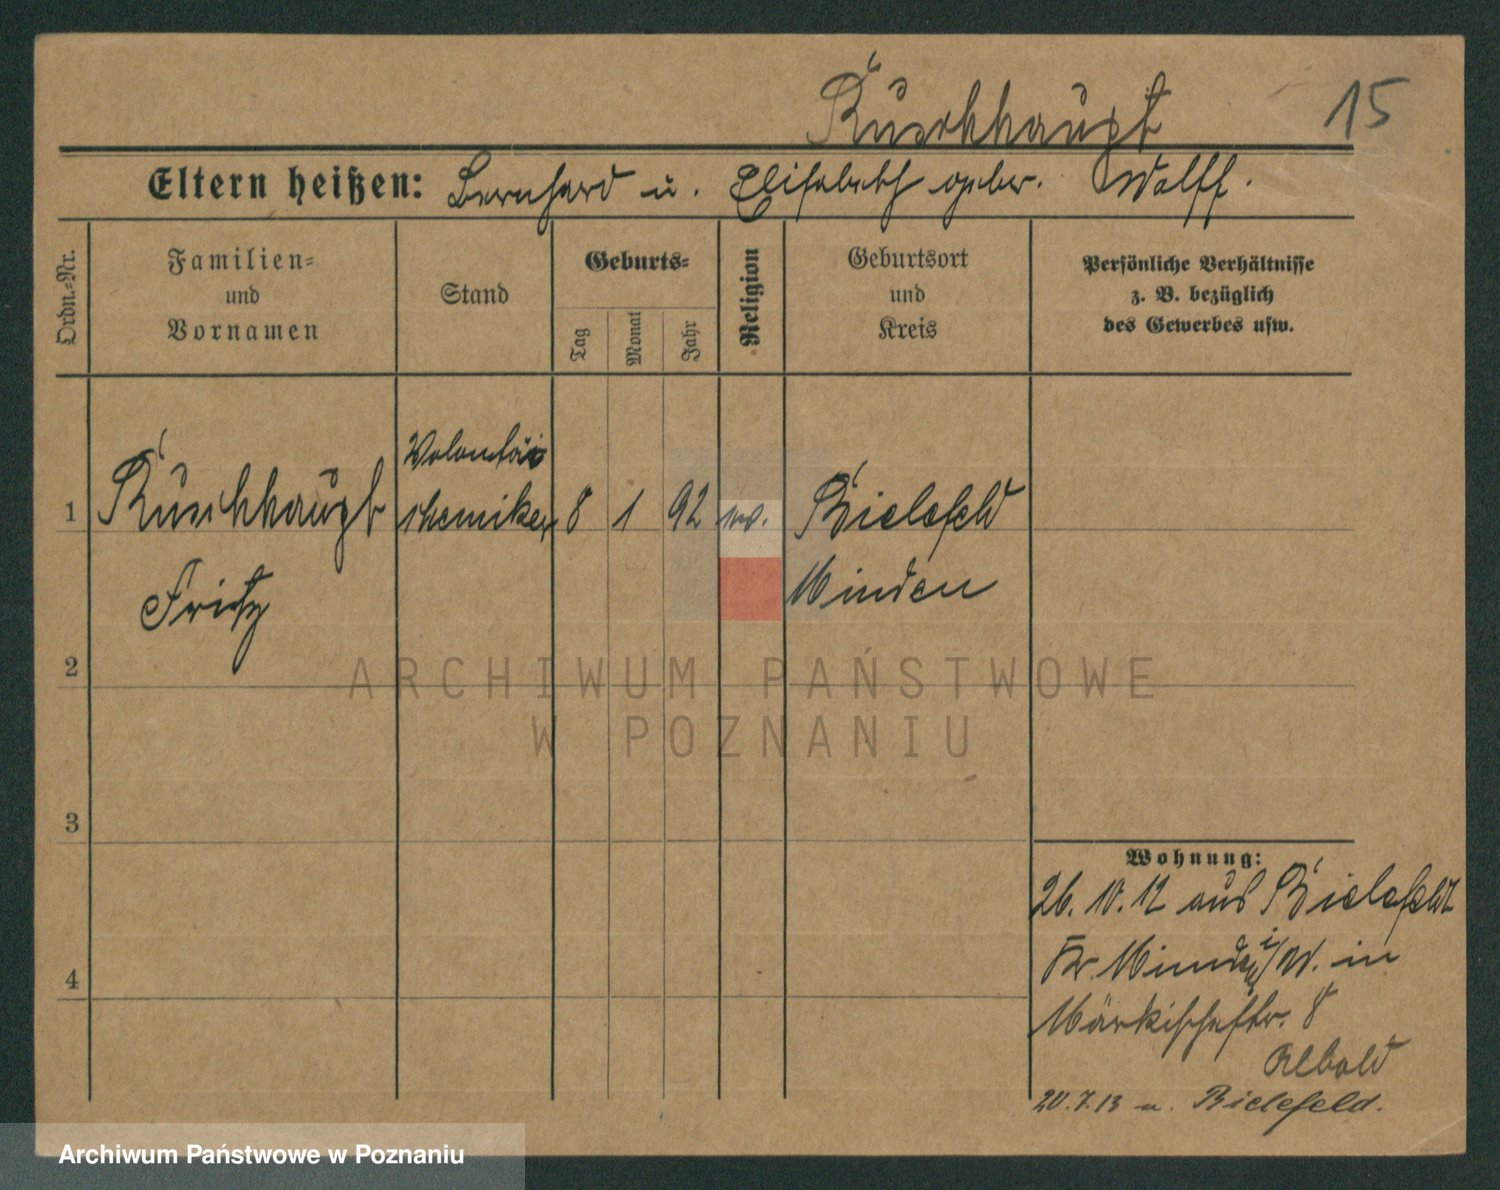 Kuschhaupt 15
Eltern heißen: Bernhard u. Elisabeth geber. Wolff.
Ordn.-Nr.
Familien-
und
Vornamen
Stand
Geburts-
Tag
Monat
Jahr
Religion
Geburtsort
und
Kreis
Persönliche Verhältnisse
z. B. bezüglich
des Gewerbes usw.
Volontär
1 Kuschhaupt chemiker 8 1 92 Bielefeld
Fritz Minden
2
ARCHIWUM PAŃSTWOWE
W POZNANIU
3
Wohnung:
26. 10. 12 aus Bielefeld
Kr. Minden i/W. in
4
Märkischestr. 8
20.7.13 n. Bielefeld.
Archiwum Państwowe w Poznaniu